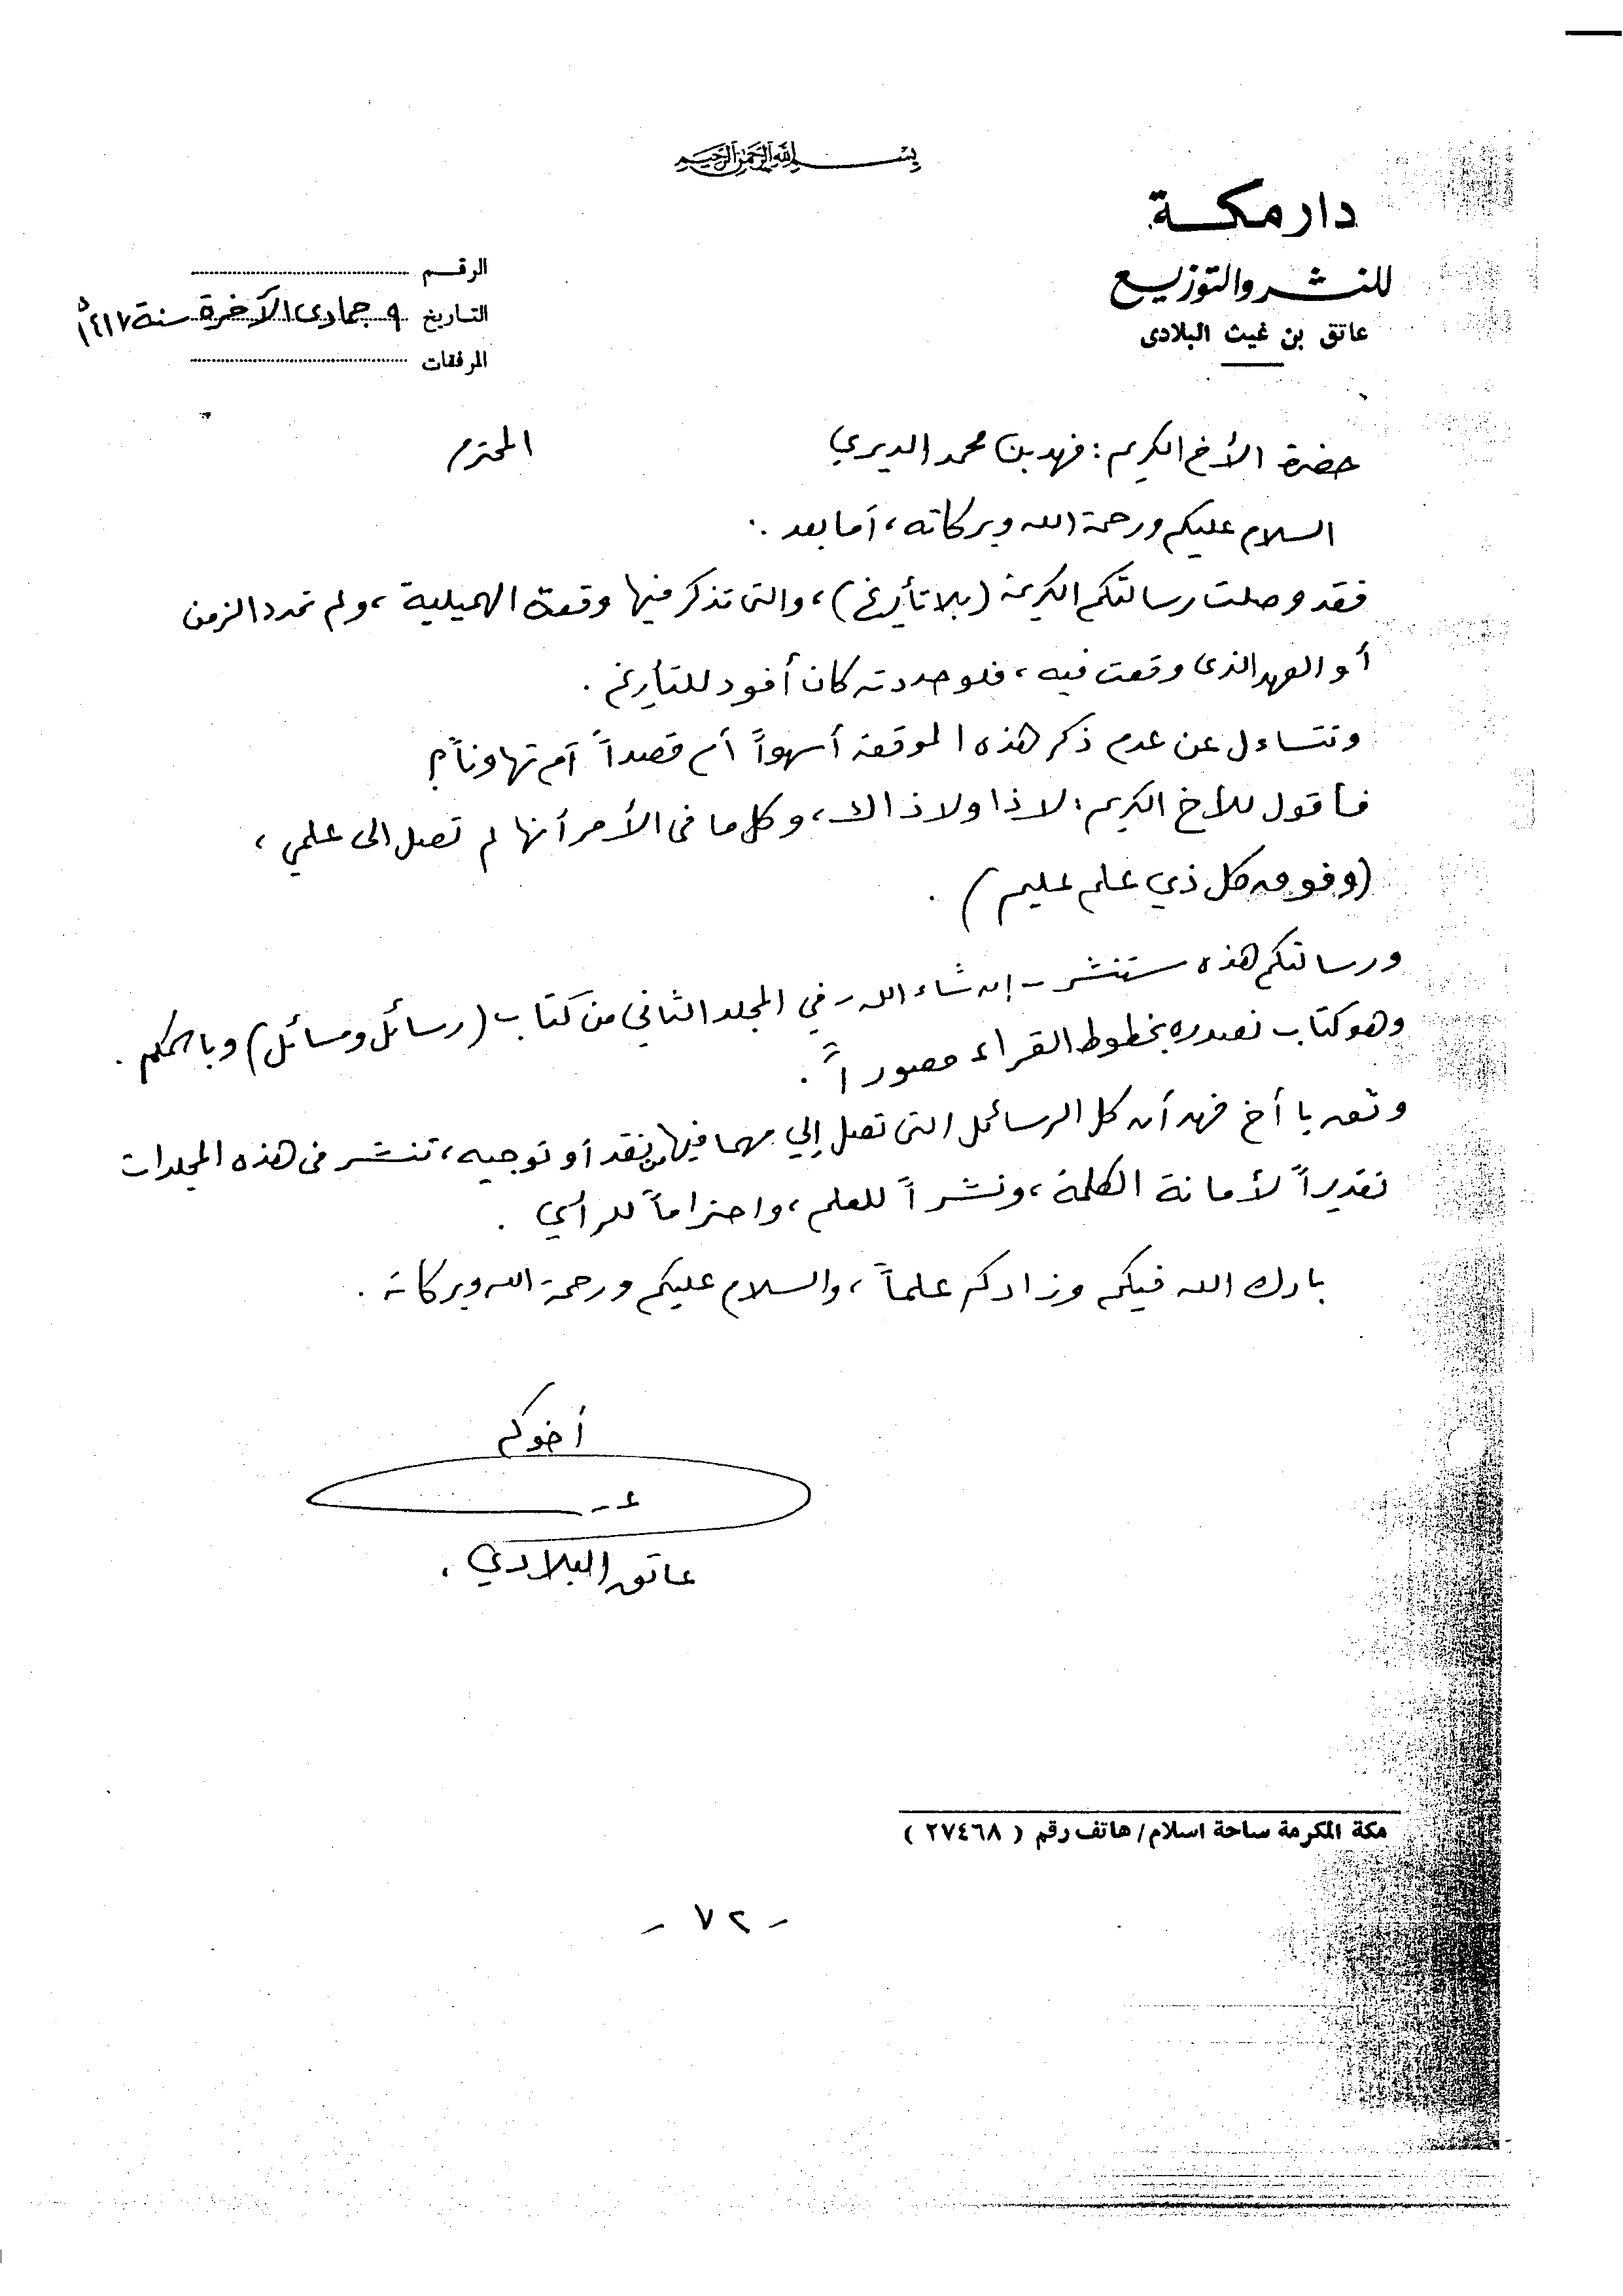 بسم الله الرحمن الرحيم
دار مكة
للنشر والتوزيع
عاتق بن غيث البلادى
الرقم
التاريخ ٩ جمادى الآخرة سنة ١٤١٧ ه
المرفقات
حضرة الأخ الكريم : فهد بن محمد الديري المحترم
السلام عليكم ورحمة الله وبركاته ، أما بعد .
فقد وصلت رسالتكم الكريمة (بلا تأريخ) ، والتى تذكر فيها وقعة الهميلية ، ولم تحدد الزمن
أو العهد الذى وقعت فيه ، فلو حددته كان أفود للتأريخ .
وتتساءل عن عدم ذكر هذه الموقعة أسهواً أم قصداً أم تهاوناً ؟
فأقول للأخ الكريم : لا ذا ولا ذاك ، وكل ما فى الأمر أنها لم تصل الى علمي ،
(وفوق كل ذي علم عليم) .
ورسالتكم هذه ستنشر - إن شاء الله - في المجلد الثاني من كتاب (رسائل ومسائل) وبالحكم .
وهو كتاب نصدره بخطوط القراء مصوراً .
وثق يا أخ فهد أن كل الرسائل التى تصل إلي مهما فيها من نقد أو توجيه ، تنشر فى هذه المجلدات
تقديراً لأمانة الكلمة ، ونشراً للعلم ، واحتراماً للرأي .
بارك الله فيكم وزادكم علماً ، والسلام عليكم ورحمة الله وبركاته .
أخوكم
عاتق البلادي .
مكة المكرمة ساحة اسلام / هاتف رقم ( ٢٧٤٦٨ )
- ٧٢ -